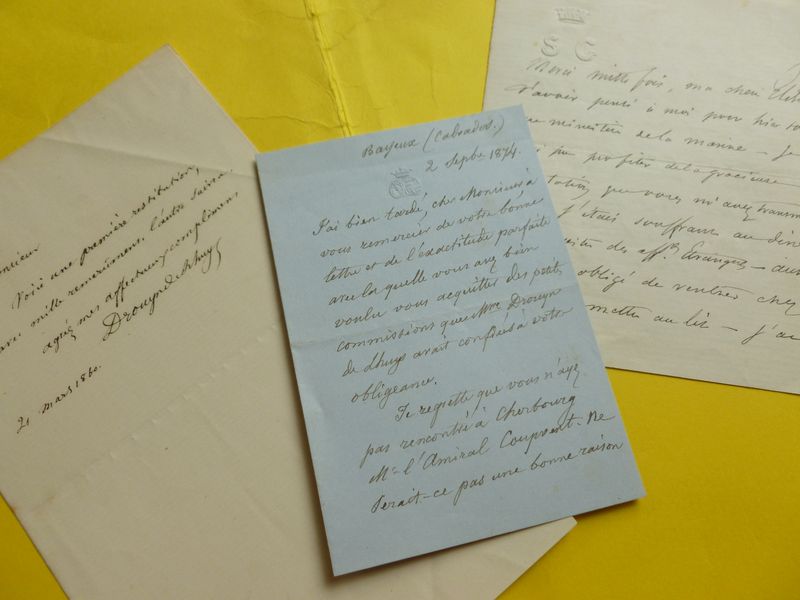 Monsieur
Voici une première restitution,
avec mille remerciement. l'autre suivra.
agréez mes affectueux complimens
Drouyn de Lhuys
21 mars 1860.
Bayeux (Calvados.)
2 Septbre 1874.
J'ai bien tardé, cher Monsieur à
vous remercier de votre bonne
lettre et de l'exactitude parfaite
avec la quelle vous avez bien
voulu vous acquitter des petites
commissions que Mme Drouyn
de Lhuys avait confiées à votre
obligeance.
Je regrette que vous n'ayez
pas rencontré à Cherbourg
Mr l'Amiral Coupvent. Ne
Serait-ce pas une bonne raison
S G
Merci mille fois, ma chère
d'avoir pensé à moi pour hier
ministère de la marine - je
pu profiter de la gracieuse
que vous m'avez
j'étais souffrant au
des affres Etrangères -
obligé de rentrer chez
mettre au lit - j'ai